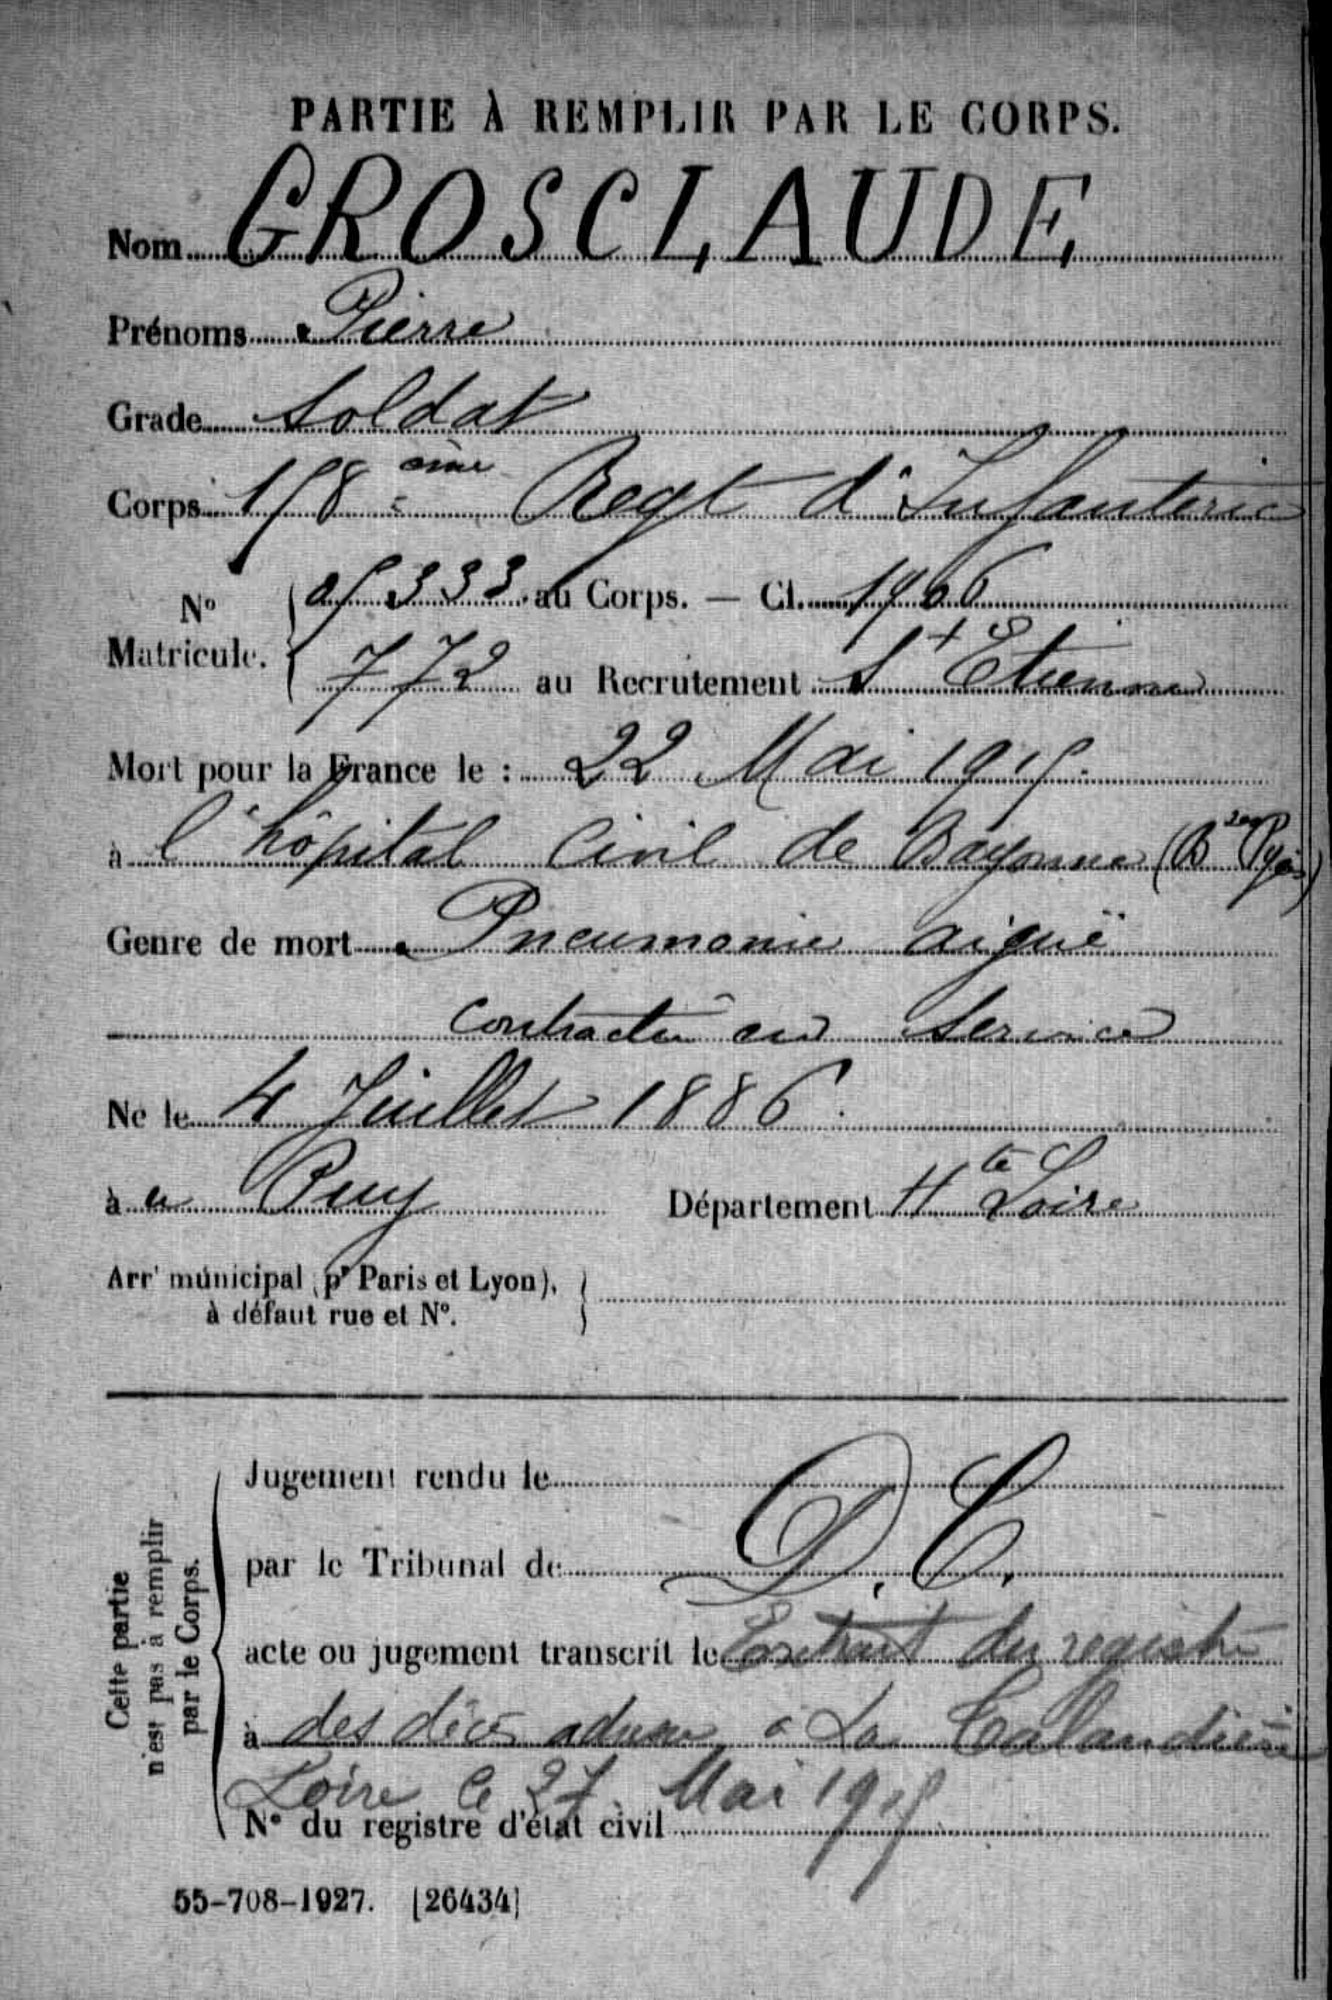 PARTIE À REMPLIR PAR LE CORPS.
Nom GROSCLAUDE
Prénoms Pierre
Grade Soldat
Corps 158 ème Regt d'Infanterie
No Matricule. 05333 au Corps. — Cl. 1906
772 au Recrutement St Etienne
Mort pour la France le : 22 Mai 1915.
à l'hôpital Civil de Bayonne (Bses Pyr)
Genre de mort Pneumonie aiguë
contractée en service
Né le 4 Juillet 1886.
à u Puy Département Hte Loire
Arrt municipal (pr Paris et Lyon), à défaut rue et No.
Cette partie n'est pas à remplir par le Corps.
Jugement rendu le
par le Tribunal de D.C.
acte ou jugement transcrit le Extrait du registre
à des décès adressé à La Talaudière
Loire le 27 Mai 1915
No du registre d'état civil
55-708-1927. [26434]